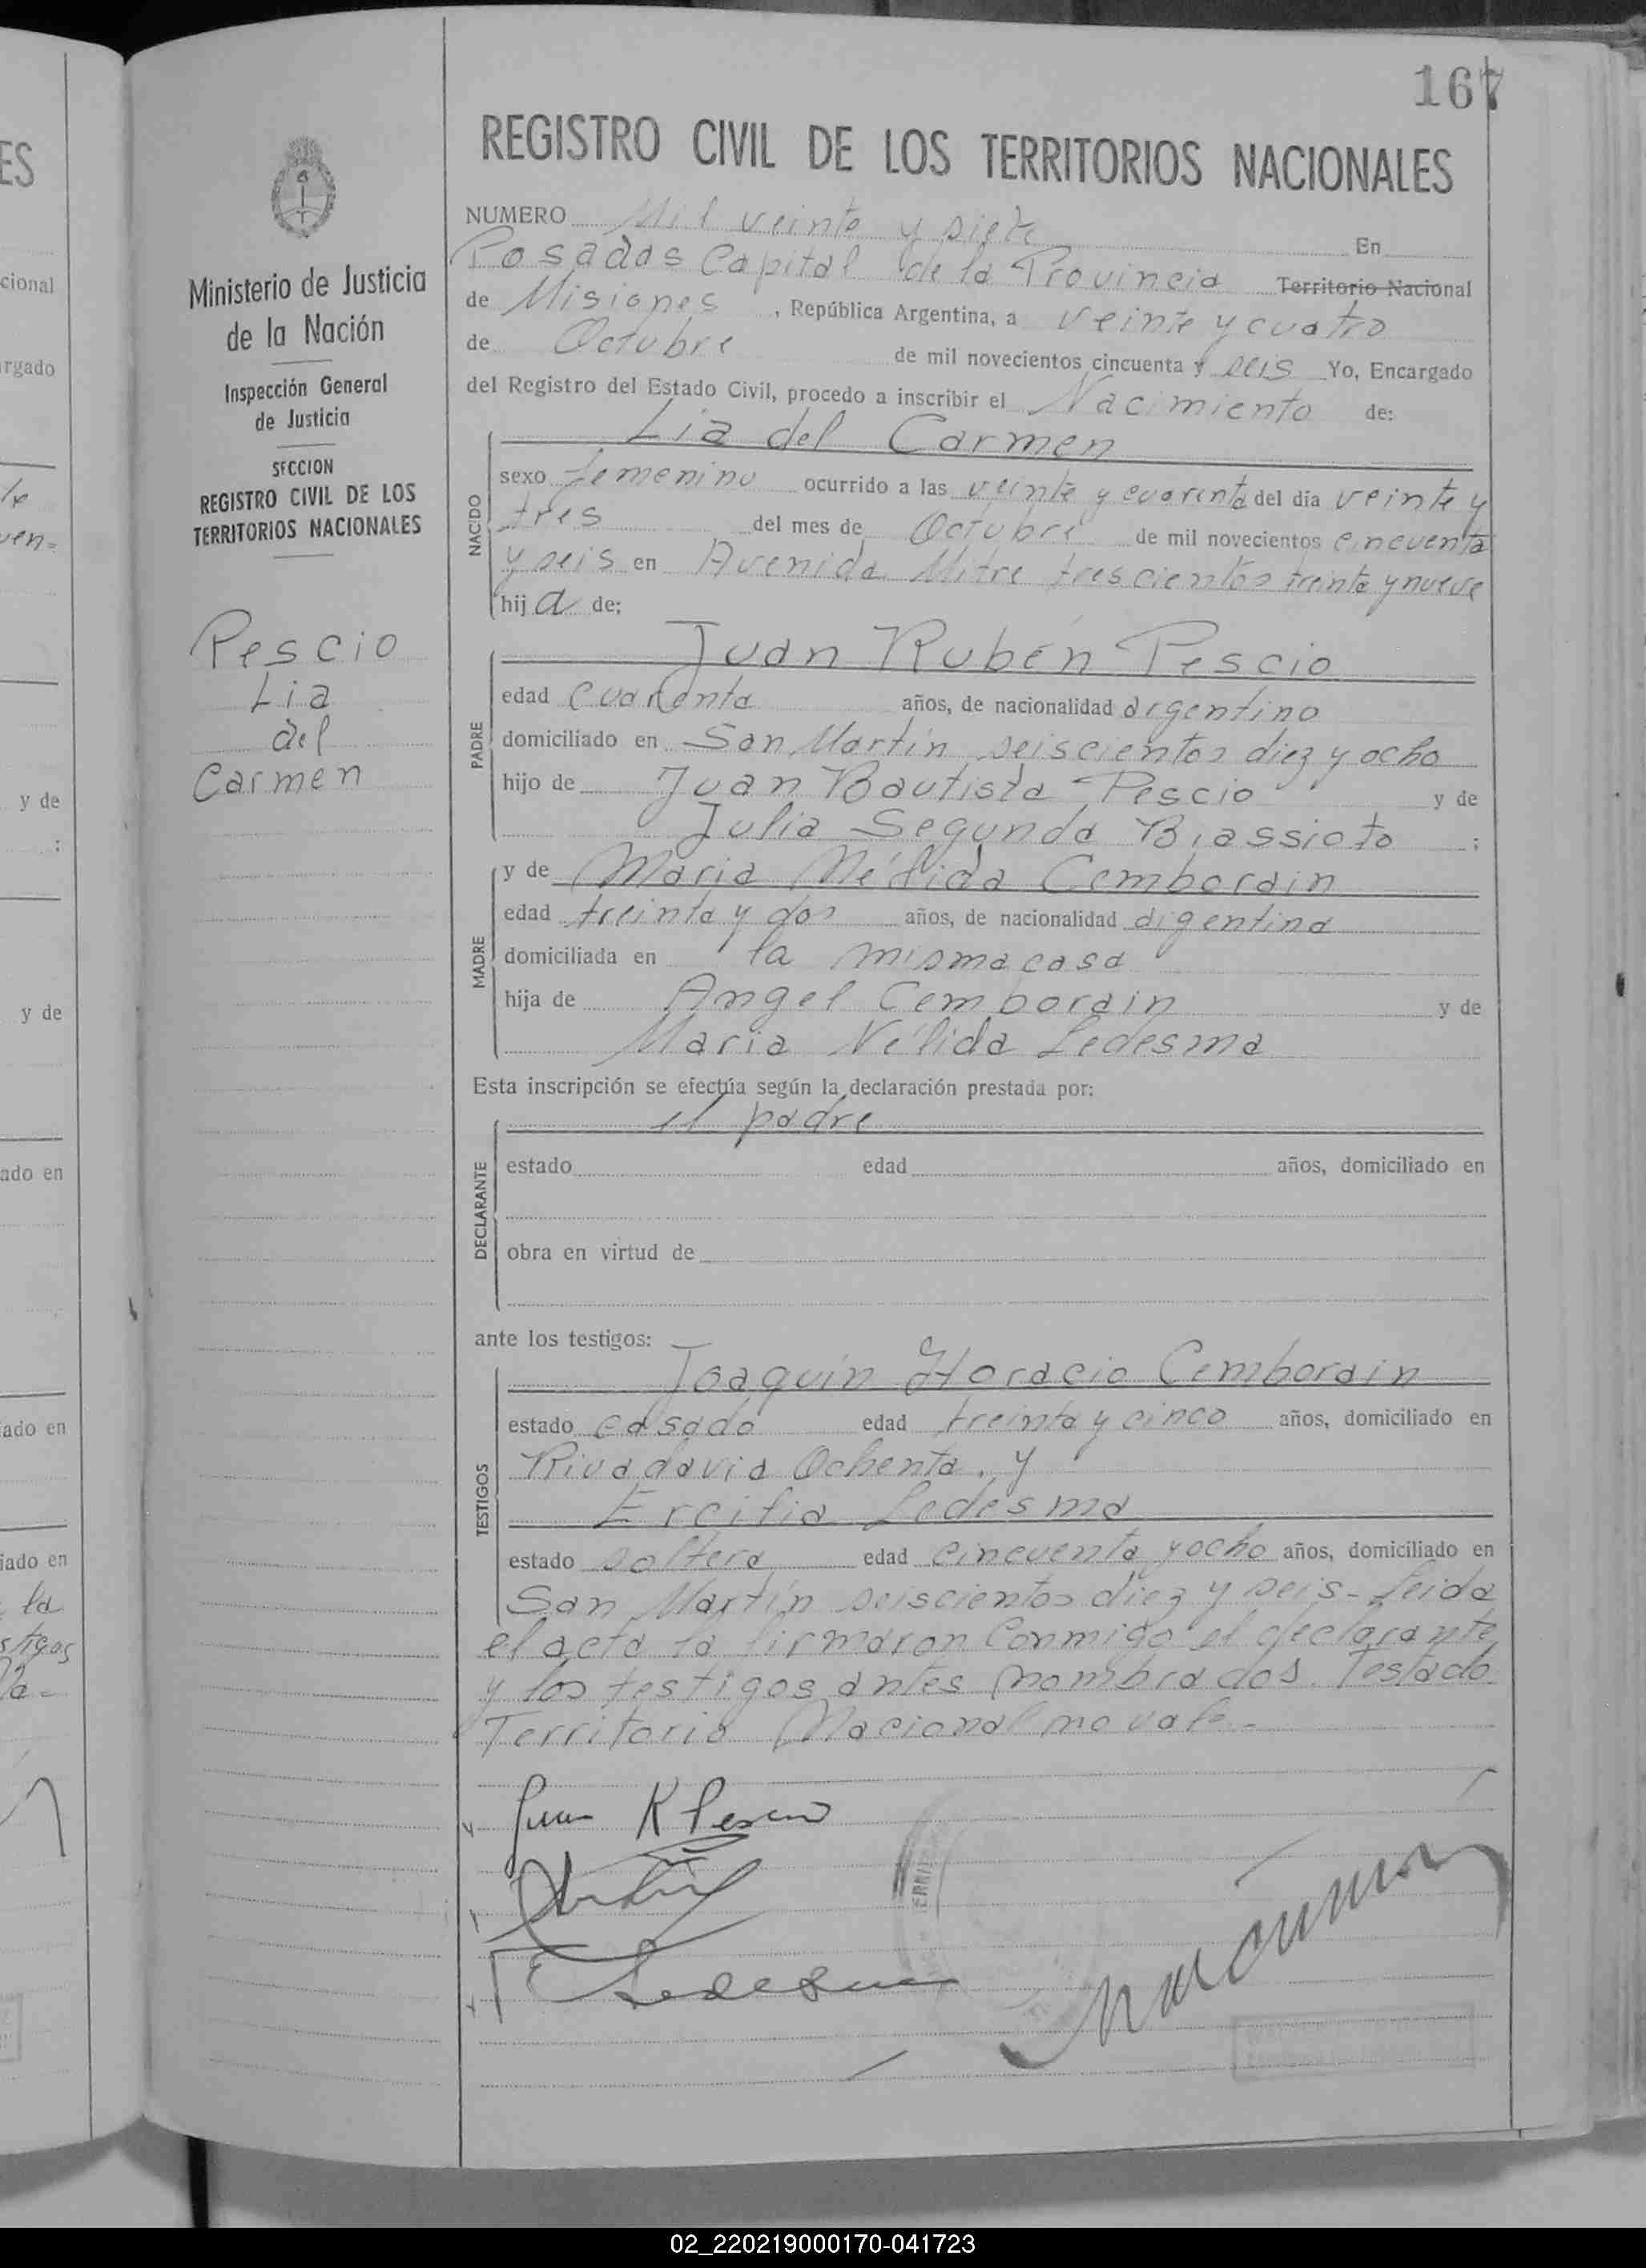 167
REGISTRO CIVIL DE LOS TERRITORIOS NACIONALES
NUMERO Mil veinte y siete En
Posadas Capital de la Provincia Territorio Nacional
de Misiones, República Argentina, a veinte y cuatro
de Octubre de mil novecientos cincuenta y seis Yo, Encargado
del Registro del Estado Civil, procedo a inscribir el Nacimiento de:
Lia del Carmen
NACIDO
sexo femenino ocurrido a las veinte y cuarenta del día veinte y
tres del mes de Octubre de mil novecientos cincuenta
y seis en Avenida Mitre trescientos treinta y nueve
hija de:
Juan Rubén Pescio
PADRE
edad cuarenta años, de nacionalidad argentino
domiciliado en San Martín seiscientos diez y ocho
hijo de Juan Bautista Pescio y de
Julia Segunda Biassioto ;
MADRE
y de Maria Nélida Cemborain
edad treinta y dos años, de nacionalidad argentina
domiciliada en la misma casa
hija de Angel Cemborain y de
Maria Nélida Ledesma
Esta inscripción se efectúa según la declaración prestada por:
el padre
DECLARANTE
estado edad años, domiciliado en
obra en virtud de
ante los testigos:
Joaquín Horacio Cemborain
TESTIGOS
estado casado edad treinta y cinco años, domiciliado en
Rivadavia Ochenta. y
Ercilia Ledesma
estado soltera edad cincuenta y ocho años, domiciliado en
San Martín seiscientos diez y seis - Leida
el acta la firmaron Conmigo el declarante
y los testigos antes nombrados. Testado
Territorio Nacional no vale -
Juan R Pescio
E Ledesma
Ministerio de Justicia
de la Nación
Inspección General
de Justicia
SECCION
REGISTRO CIVIL DE LOS
TERRITORIOS NACIONALES
Pescio
Lia
del
Carmen
ES
cional
rgado
y de
;
y de
ado en
iado en
iado en
la
stigos
02_220219000170-041723